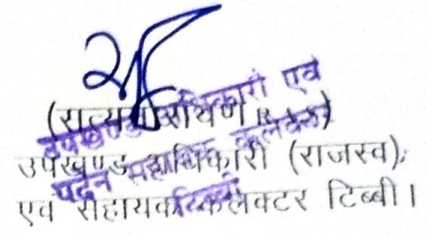 (सत्यनारायण R.A.S)
उपखण्ड अधिकारी (राजस्व),
एवं सहायक कलेक्टर टिब्बी।
उपखण्ड अधिकारी एवं
पदेन सहायक कलेक्टर
टिब्बी